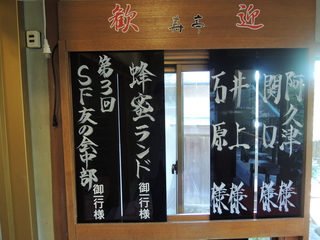 歓 寿幸 迎
阿久津 様
関口 様
井上 様
石原 様
蜂蜜ランド 御一行様
第3回
SF友の会中部 御一行様